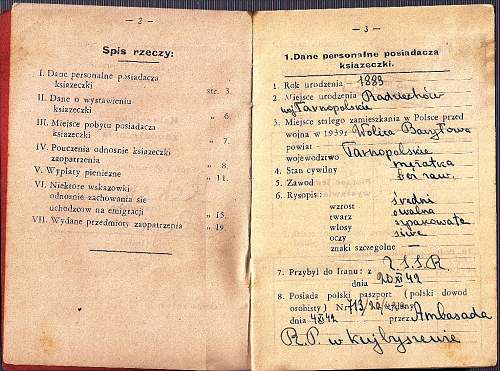 — 2 —
Spis rzeczy:
I. Dane personalne posiadacza
ksiazeczki
str. 3.
II. Dane o wystawieniu
ksiazeczki
„ 6.
III. Miejsce pobytu posiadacza
ksiazeczki
„ 7.
IV. Pouczenia odnosnie ksiazeczki
zaopatrzenia
„ 8.
V. Wyplaty pieniezne
„ 11.
VI. Niektore wskazowki
odnosnie zachowania sie
uchodzcow na emigracji
„ 15.
VII. Wydane przedmioty zaopatrzenia
„ 19.
— 3 —
1.Dane personalne posiadacza
ksiazeczki.
1. Rok urodzenia - 1889
2. Miejsce urodzenia Radziechów
woj Tarnopolskie
3. Miejsce stalego zamieszkania w Polsce przed
wojna w 1939r Wolica Baryłowa
powiat —
wojewodztwo Tarnopolskie
4. Stan cywilny mężatka
5. Zawod bez zaw.
6. Rysopis:
wzrost średni
twarz owalna
wlosy szpakowate
oczy siwe
znaki szczegolne —
7. Przybyl do Iranu: z Z.S.S.R.
dnia
8. Posiada polski paszport (polski dowod
osobisty) Nr wydany
dnia przez Ambasada
R.P. w Kujbyszewie